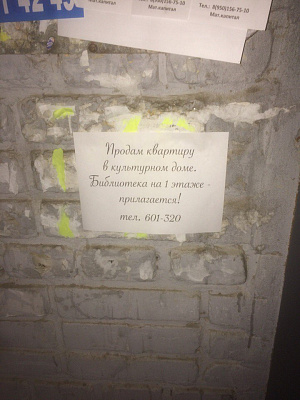 42 43
Мат.капитал
Мат.капитал
Тел.: 8(950)156-75-10
Мат.капитал
Продам квартиру
в культурном доме.
Библиотека на 1 этаже -
прилагается!
тел. 601-320